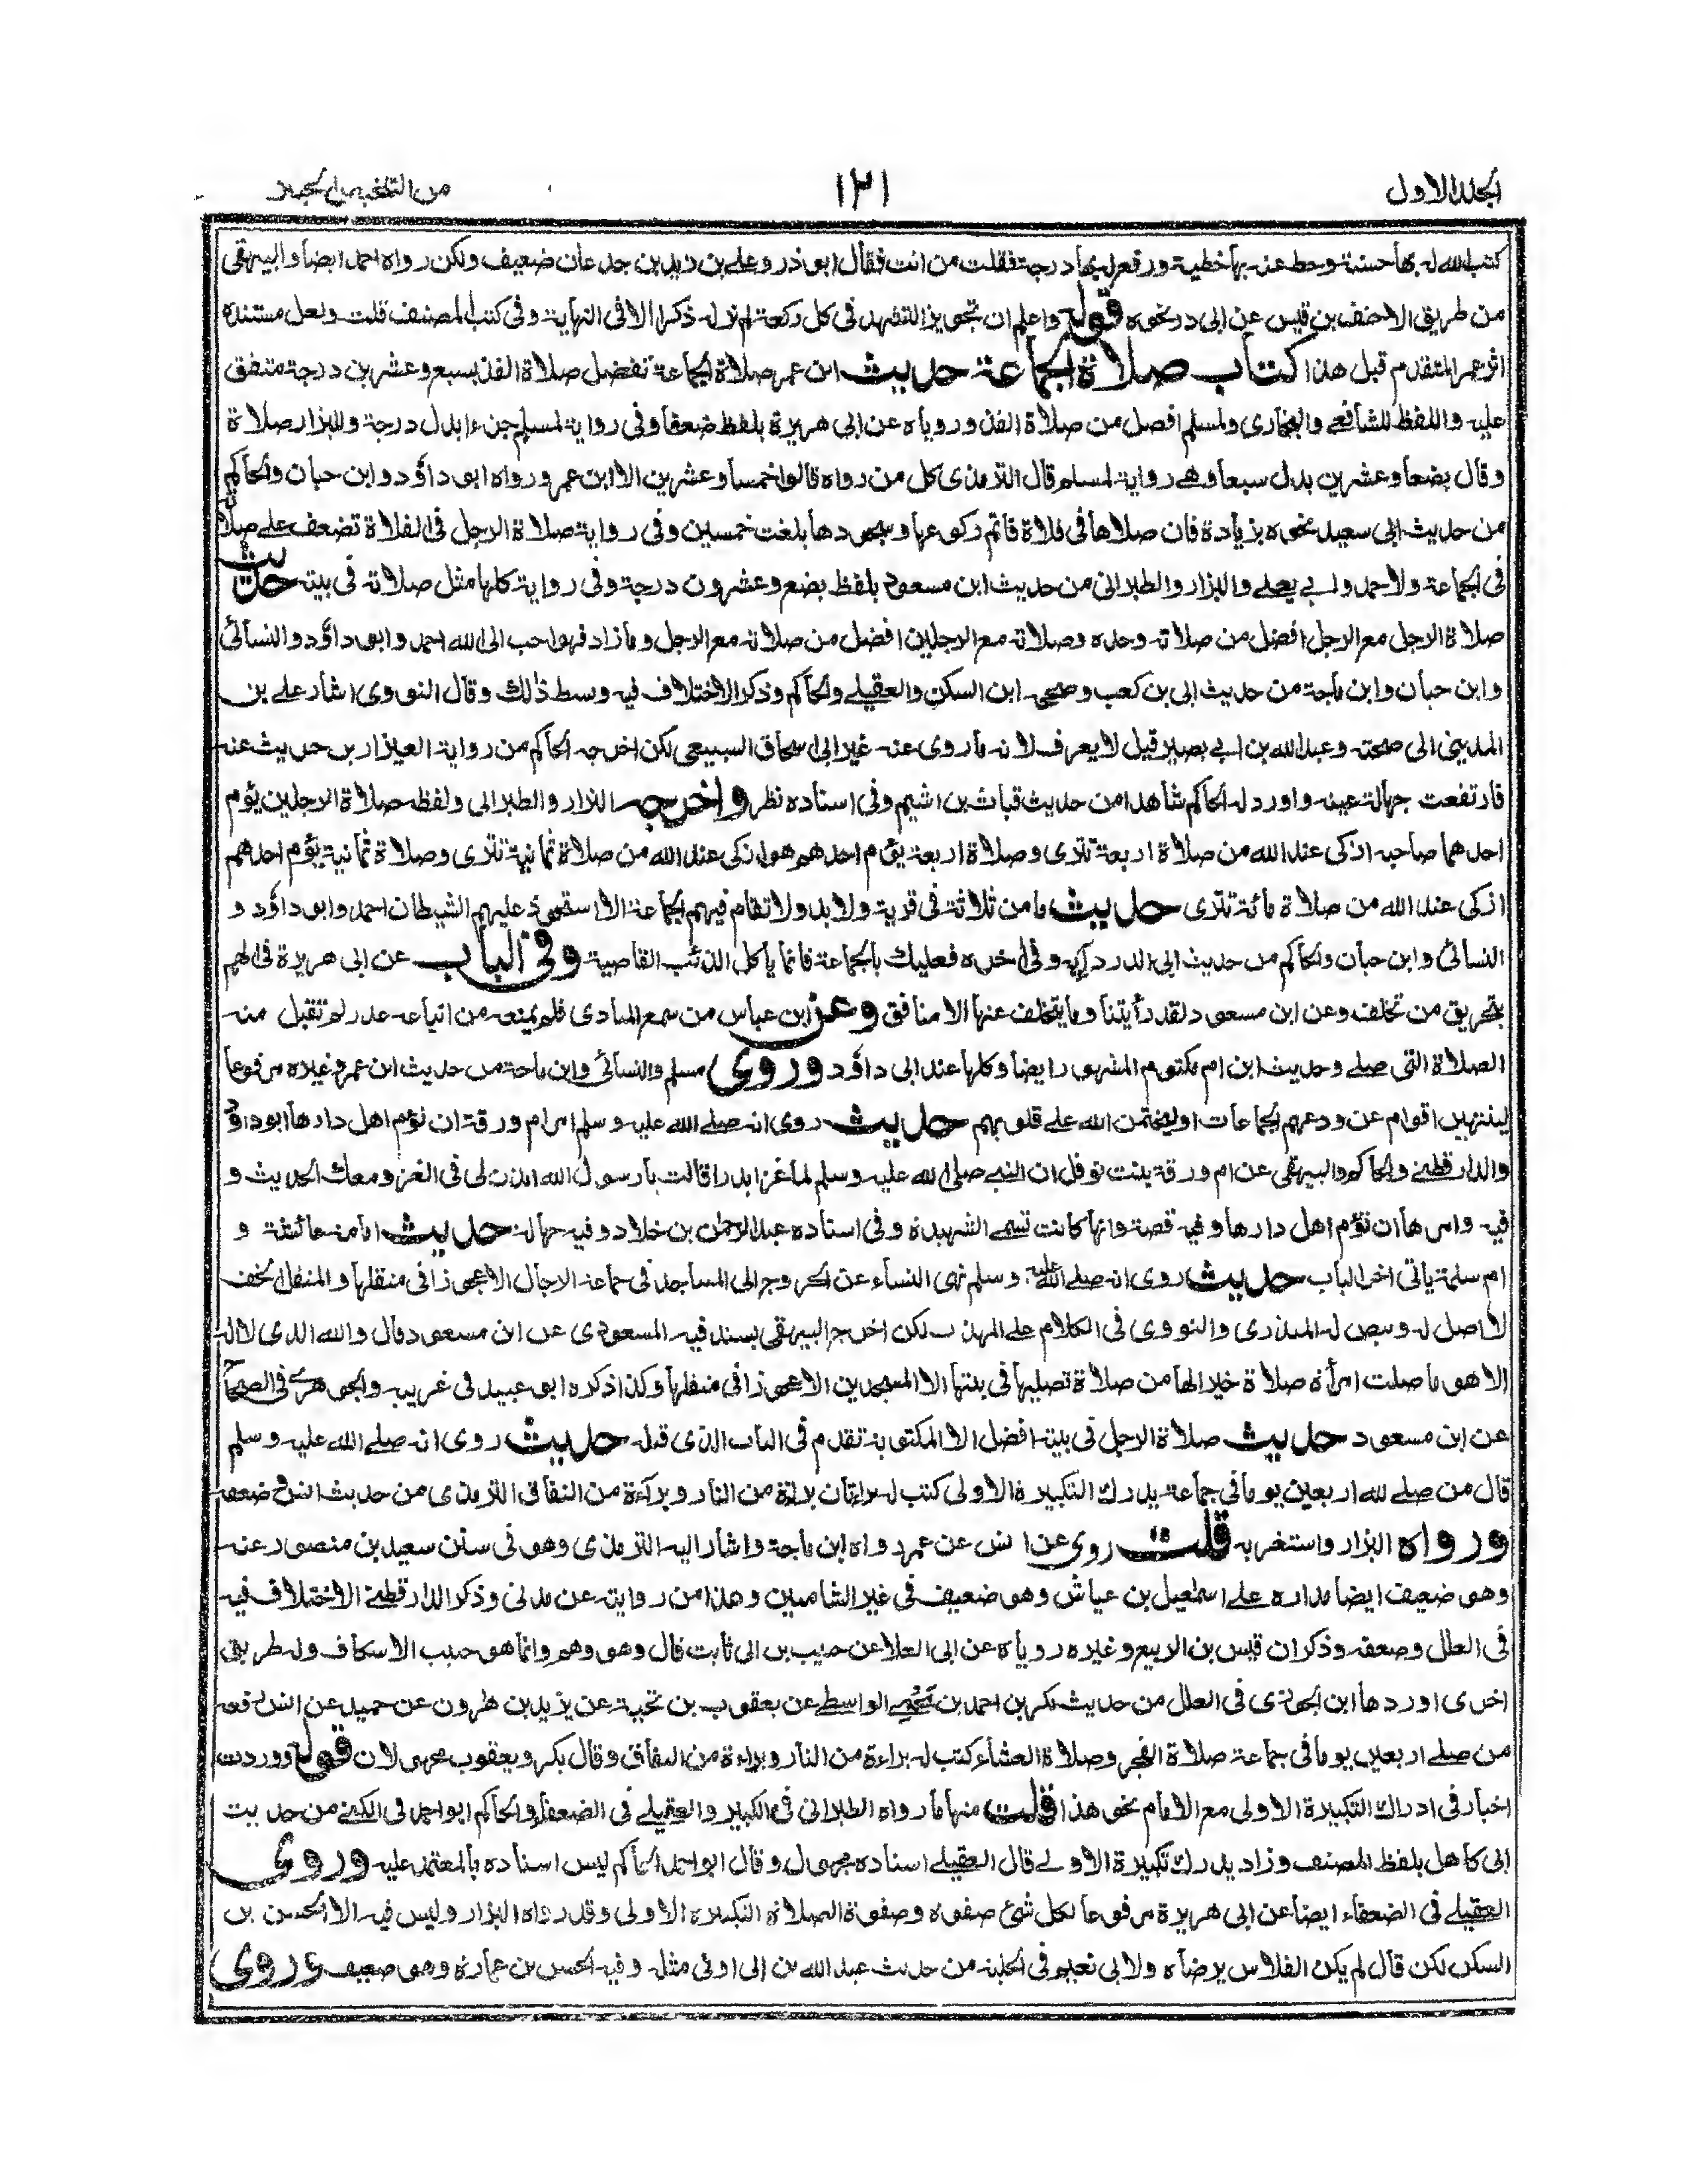 الجلد الاول
١٢١
من التلخيص الحبير
كتب الله له بها حسنة وحط عنه بها خطية ورفع له بها درجة فقلت من انت فقال ابو ذر وعلي بن زيد بن جدعان ضعيف ولكن رواه احمد ايضا والبيهقي
من طريق الاحنف بن قيس عن ابي ذر نحوه قوله واعلم ان تجويز التشهد في كل ركعة لم نر له ذكرا الا في النهاية وفي كتب المصنف قلت ولعل مستنده
اثر عمر المتقدم قبل هذا كتاب صلاة الجماعة حديث ابن عمر صلاة الجماعة تفضل صلاة الفذ بسبع وعشرين درجة متفق
عليه واللفظ للشافعي والبخاري ولمسلم افضل من صلاة الفذ وروياه عن ابي هريرة بلفظ ضعفا وفي رواية لمسلم جزءا بدل درجة وللبزار صلاة
وقال بضعا وعشرين بدل سبعا وهي رواية لمسلم قال الترمذي كل من رواه قالوا خمسا وعشرين الا ابن عمر ورواه ابو داؤد وابن حبان والحاكم
من حديث ابي سعيد نحوه بزيادة فان صلاها في فلاة فاتم ركوعها وسجودها بلغت خمسين وفي رواية صلاة الرجل في الفلاة تضعف على صلاته
في الجماعة ولاحمد وابي يعلى والبزار والطبراني من حديث ابن مسعود بلفظ بضع وعشرون درجة وفي رواية كلها مثل صلاته في بيته حديث
صلاة الرجل مع الرجل افضل من صلاته وحده وصلاته مع الرجلين افضل من صلاته مع الرجل وما زاد فهو احب الى الله احمد وابو داؤد والنسائي
وابن حبان وابن ماجة من حديث ابي بن كعب وصححه ابن السكن والعقيلي والحاكم وذكر الاختلاف فيه وبسط ذلك وقال النووي اشار علي بن
المديني الى صحته وعبد الله بن ابي بصير قيل لا يعرف لانه ما روى عنه غير ابي اسحاق السبيعي لكن اخرجه الحاكم من رواية العيزار بن حريث عنه
فارتفعت جهالة عينه واورد له الحاكم شاهدا من حديث قباث بن اشيم وفي اسناده نظر واخرجه البزار والطبراني ولفظه صلاة الرجلين يؤم
احدهما صاحبه ازكى عند الله من صلاة اربعة تترى وصلاة اربعة يؤم احدهم هو ازكى عند الله من صلاة ثمانية تترى وصلاة ثمانية يؤم احدهم
ازكى عند الله من صلاة مائة تترى حديث ما من ثلاثة في قرية ولا بدو لا تقام فيهم الجماعة الا استحوذ عليهم الشيطان احمد وابو داؤد و
النسائي وابن حبان والحاكم من حديث ابي الدرداء وفي اخره فعليك بالجماعة فانما ياكل الذئب القاصية وفي الباب عن ابي هريرة في الهم
بتحريق من تخلف وعن ابن مسعود لقد رأيتنا وما يتخلف عنها الا منافق وعن ابن عباس من سمع المنادي فلم يمنعه من اتباعه عذر لم تقبل منه
الصلاة التي صلى وحديث ابن ام مكتوم المشهور ايضا وكلها عند ابي داؤد وروى مسلم والنسائي وابن ماجة من حديث ابن عمر وغيره مرفوعا
لينتهين اقوام عن ودعهم الجماعات او ليختمن الله على قلوبهم حديث روى انه صلى الله عليه وسلم امر ام ورقة ان تؤم اهل دارها ابو داؤد
والدارقطني والحاكم والبيهقي عن ام ورقة بنت نوفل ان النبي صلى الله عليه وسلم لما غزا بدرا قالت يا رسول الله ائذن لي في الغزو معك الحديث و
فيه وامرها ان تؤم اهل دارها وفيه قصة وانها كانت تسمى الشهيدة وفي اسناده عبد الرحمن بن خلاد وفيه جهالة حديث امامة عائشة و
ام سلمة ياتي اخر الباب حديث روى انه صلى الله عليه وسلم نهى النساء عن الخروج الى المساجد في جماعة الرجال الا عجوزا في منقلها والمنقل الخف
لا اصل له وبيض له المنذري والنووي في الكلام على المهذب لكن اخرج البيهقي بسند فيه المسعودي عن ابن مسعود قال والله الذي لا اله
الا هو ما صلت امرأة صلاة خير لها من صلاة تصليها في بيتها الا المسجدين الا عجوزا في منقلها وكذا ذكره ابو عبيد في غريبه والجوهري في الصحاح
عن ابن مسعود حديث صلاة الرجل في بيته افضل الا المكتوبة تقدم في الباب الذي قبله حديث روى انه صلى الله عليه وسلم
قال من صلى لله اربعين يوما في جماعة يدرك التكبيرة الاولى كتب له براءتان براءة من النار وبراءة من النفاق الترمذي من حديث انس وضعفه
ورواه البزار واستغربه قلت روى عن انس عن عمر رواه ابن ماجة واشار اليه الترمذي وهو في سنن سعيد بن منصور عنه
وهو ضعيف ايضا مداره على اسمعيل بن عياش وهو ضعيف في غير الشاميين وهذا من روايته عن مدني وذكر الدارقطني الاختلاف فيه
في العلل وضعفه وذكر ان قيس بن الربيع وغيره روياه عن ابي العلا عن حبيب بن ابي ثابت قال وهو وهم وانما هو حبيب الاسكاف وله طريق
اخرى اوردها ابن الجوزي في العلل من حديث بكر بن احمد بن محمي الواسطي عن يعقوب بن تحية عن يزيد بن هرون عن حميد عن انس رفعه
من صلى اربعين يوما في جماعة صلاة الفجر وصلاة العشاء كتب له براءة من النار وبراءة من النفاق وقال بكر ويعقوب مجهولان قوله ووردت
اخبار في ادراك التكبيرة الاولى مع الامام نحو هذا قلت منها ما رواه الطبراني في الكبير والعقيلي في الضعفاء والحاكم ابو احمد في الكنى من حديث
ابي كاهل بلفظ المصنف وزاد يدرك تكبيرة الاولى قال العقيلي اسناده مجهول وقال ابو احمد الحاكم ليس اسناده بالمعتمد عليه وروى
العقيلي في الضعفاء ايضا عن ابي هريرة مرفوعا لكل شئ صفوة وصفوة الصلاة التكبيرة الاولى وقد رواه البزار وليس فيه الا الحسن بن
السكن لكن قال لم يكن الفلاس يرضاه ولابي نعيم في الحلية من حديث عبد الله بن ابي اوفى مثله وفيه الحسن بن عمارة وهو ضعيف وروى